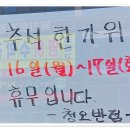 추석 한가위
16일(월)~17일(화)
휴무입니다.
- 청오반점 -